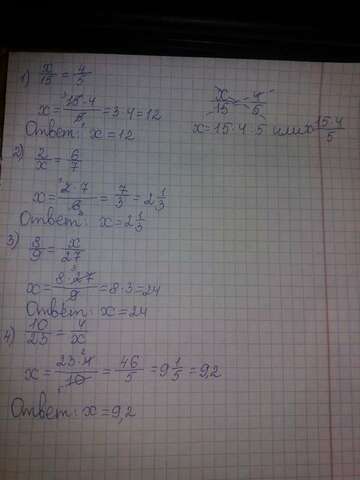 1) x/15 = 4/5
x = 15·4/5 = 3·4 = 12
Ответ: x = 12
x/15 = 4/5
x = 15·4·5 или x 15·4/5
2) 2/x = 6/7
x = 2·7/6 = 7/3 = 2 1/3
Ответ: x = 2 1/3
3) 8/9 = x/27
x = 8·27/9 = 8·3 = 24
Ответ: x = 24
4) 10/23 = 4/x
x = 23·4/10 = 46/5 = 9 1/5 = 9,2
Ответ: x = 9,2